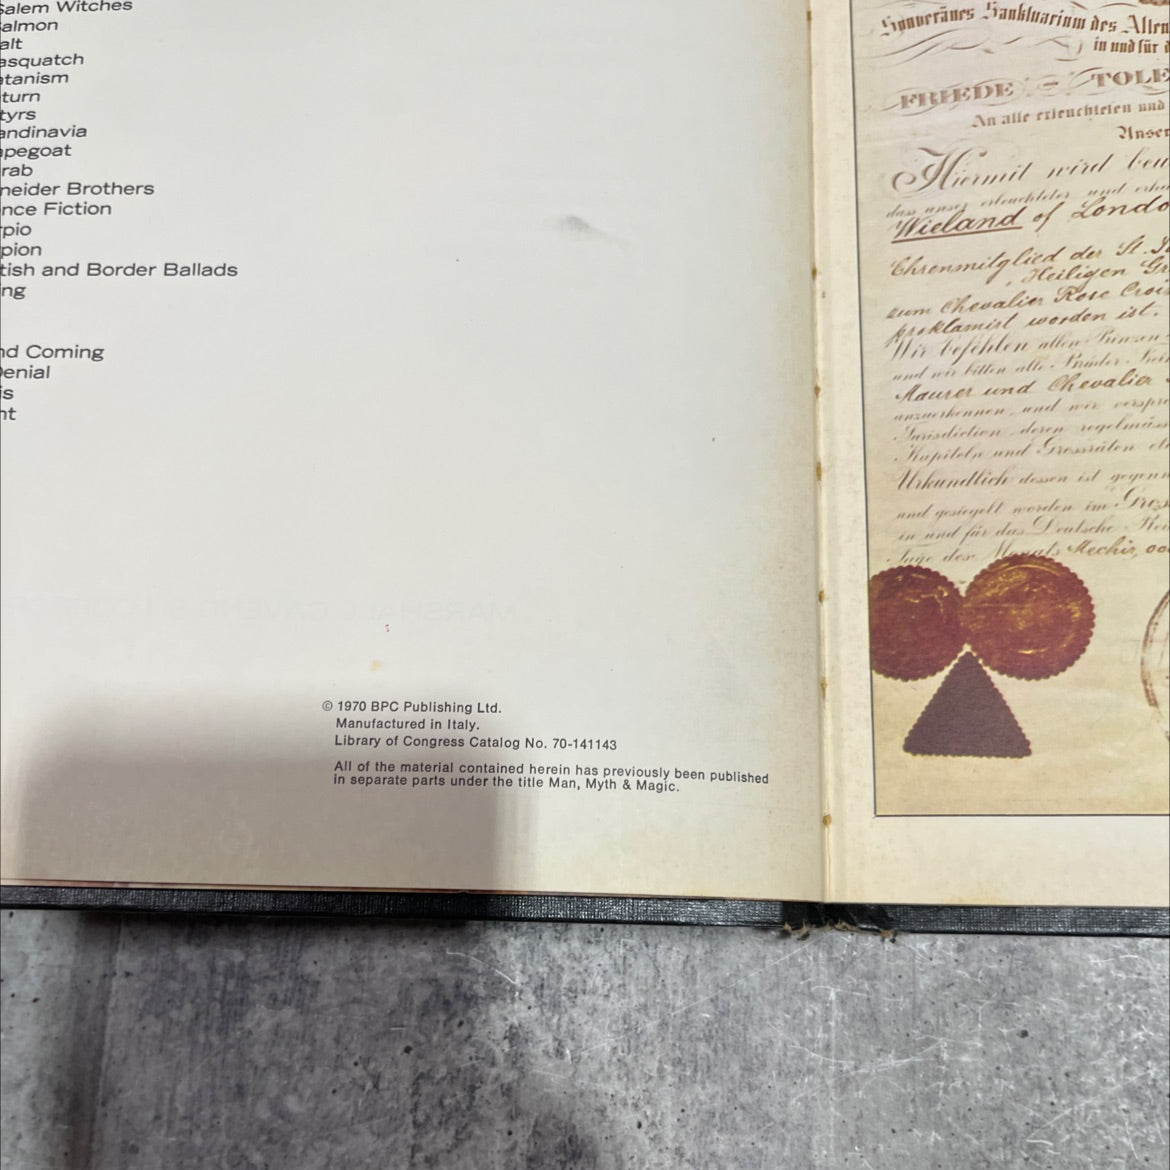 Salem Witches
almon
alt
asquatch
atanism
turn
tyrs
andinavia
apegoat
rab
neider Brothers
nce Fiction
rpio
pion
tish and Border Ballads
ing
nd Coming
Denial
is
nt
MARSHALL CAVENDISH CORPOR
© 1970 BPC Publishing Ltd.
Manufactured in Italy.
Library of Congress Catalog No. 70-141143
All of the material contained herein has previously been published
in separate parts under the title Man, Myth & Magic.
Souveränes Sanktuarium des Alten
in und für d
FRIEDE - TOLE
An alle erleuchteten und
Unser
Hiermit wird beu
das unser erleuchteter und erh
Wieland of Londo
Ehrenmitglied der St. J
Heiligen Gr
zum Chevalier Rose Croix
proklamirt worden ist.
Wir befehlen allen Prinzen
und wir bitten alle Brüder Frei
Maurer und Chevalier
anzuerkennen, und wir verspre
Jurisdiction deren regelmäss
Kapiteln und Grossräten et
Urkundlich dessen ist gegenw
und gesiegelt worden im Gros
in und für das Deutsche Rei
Tage des Monats Mechir, oo